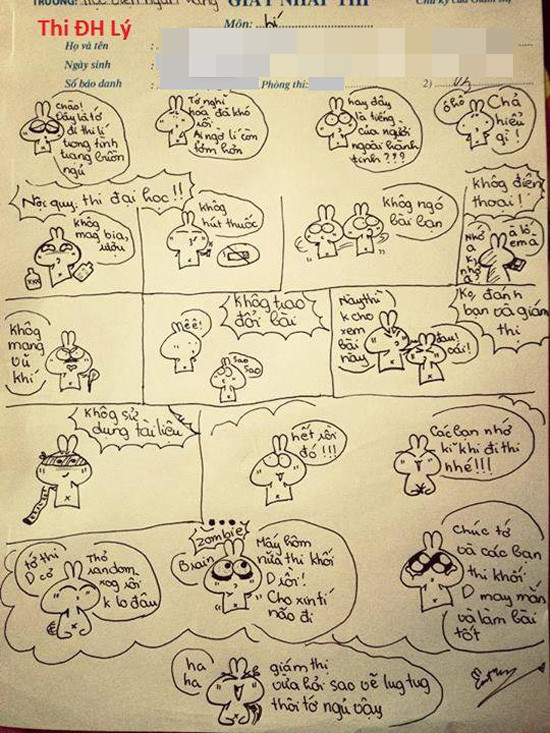 TRƯỜNG: Học viện ngân hàng GIẤY NHÁP THI
Thi ĐH Lý
Môn: lí
Họ và tên :
Ngày sinh :
Số báo danh : Phòng thi: 2)
chào!
Đây là tớ
đi thi lí
trong tình
trạng buồn
ngủ
Tớ nghĩ
hóa đã khó
rồi
Ai ngờ lí còn
tởm hơn
hay đây
là tiếng
của người
ngoài hành
tinh???
ô hô
Chả
hiểu
gì!
Nội quy thi đại học!!
khôg
mag bia,
rượu
XXX
khôg
hút thuốc
khôg ngó
bài bạn
khôg điện
thoại!
Nhớ
a
k
nhớ
a
a lô
em à
khôg
mang
vũ
khí
khôg trao
đổi bài
Mêê!
sao
sao
Này thì
k cho
xem
bài
này
Ko đánh
bạn và giám
thị
đau!
oái!
khôg sử
dụng tài liệu
hết rồi
đó!!!
Các bạn nhớ
kĩ khi đi thi
nhé!!!
tớ thi
D cơ
Thỏ
random
xog rồi
k lo đâu
zombie
Brain
Mấy hôm
nữa thi khối
D rồi!
Cho xin tí
não đi
Chúc tớ
và các bạn
thi khối
D may mắn
và làm bài
tốt
ha
ha
giám thị
vừa hỏi sao vẽ lug tug
thôi tớ ngủ vậy